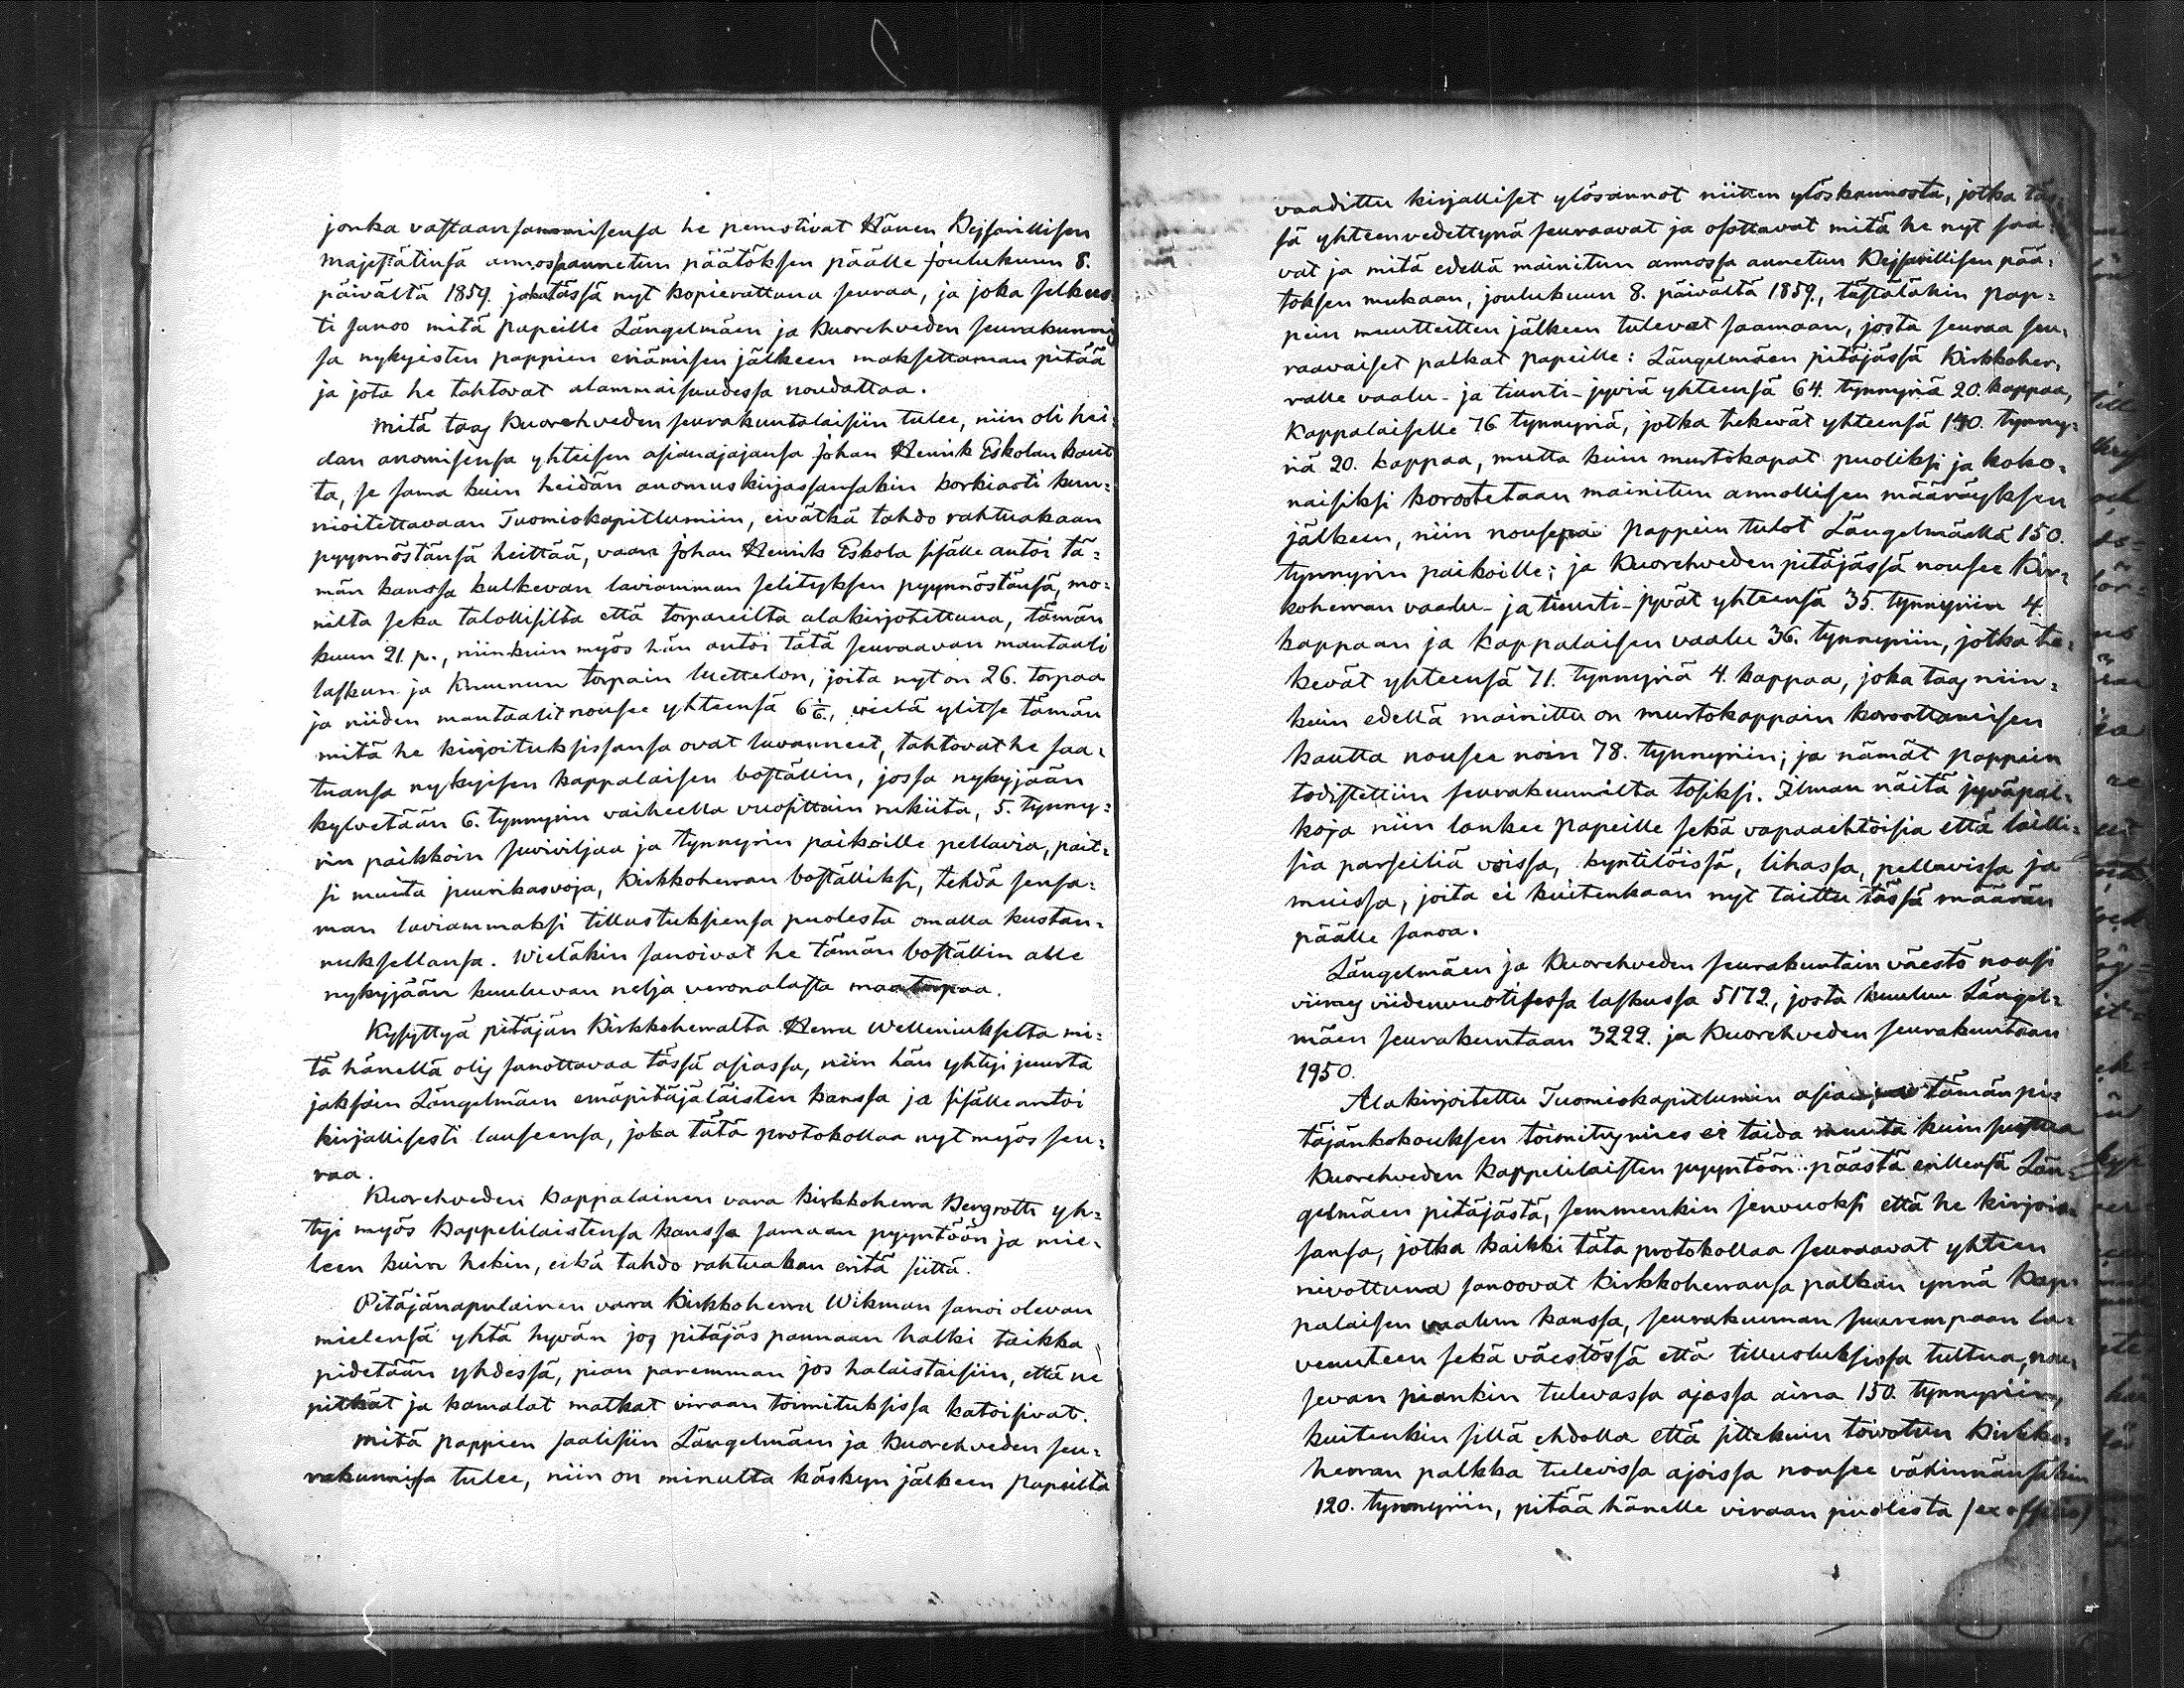 jonka vastaansanomisensa he perustivat Hänen Keisarillisen
Majestätinsä armossa annetun päätöksen päälle Joulukuun 8.
päivältä 1859. joka tässä nyt kopierattuna seuraa, ja joka selkeäs-
ti sanoo mitä papeille Längelmäen ja Kuorehveden seurakunnis
sa nykyisten pappien eriämisen jälkeen maksettaman pitää
ja jota he tahtovat alammaisuudessa noudattaa.
Mitä taas Kuorehveden seurakuntalaisiin tulee, niin oli hei-
dan anomisensa yhteisen asianajajansa Johan Henrik Eskolan kaut
ta, se sama kuin heidän anomuskirjassansakin korkiasti kun-
nioitettavaan Tuomiokapitlumiin, eivätkä tahdo rahtuakaan
pyynnöstänsä heittää, vaan Johan Henrik Eskola sisälle antoi tä-
män kanssa kulkevan laviamman selityksen pyynnöstänsä, mo-
nilta seka talollisilta että torpareilta alakirjotettuna, tämän
kuun 21. p., niinkuin myös hän antoi tätä seuraavan mantaali
laskun ja Kruunun torpain luettelon, joita nyt on 26. torpaa
ja niiden mantaalit nousee yhteensä 6 1/6., wielä ylitse tämän
mitä he kirjoituksissansa ovat luvanneet, tahtovat he saa-
tuansa nykyisen kappalaisen boställin, jossa nykyjään
kylvetään 6. tynnyrin vaiheella vuosittain rukiita, 5. tynny-
rin paikkoin suviviljaa ja tynnyrin paikoille pellavia, pait-
si muita juurikasvoja, Kirkkoherran boställiksi, tehdä sensa-
man laviammaksi tillustuksiensa puolesta omalla kustan-
nuksellansa. Wieläkin sanoivat he tämän boställin alle
nykyjään kuuluvan neljä veronalasta maatorpaa.
Kysyttyä pitäjän Kirkkoherralta Herra Welleniukselta mi-
tä hänellä olis sanottavaa tässä asiassa, niin hän yhtyi juurta
jaksain Längelmäen emäpitäjäläisten kanssa ja sisälle antoi
kirjallisesti lauseensa, joka tätä protokollaa nyt myös seu-
raa.
Kuorehveden Kappalainen vara kirkkoherra Bergroth yh-
tyi myös Kappelilaistensa kanssa samaan pyyntöön ja mie-
leen kuin hekin, eikä tahdo rahtuakan eritä siitä.
Pitäjänapulainen vara Kirkkoherra Wikman sanoi olevan
mielensä yhtä hyvän jos pitäjäs pannaan halki taikka
pidetään yhdessä, pian paremman jos halaistaisiin, että ne
pitkät ja kamalat matkat viraan toimituksissa katoisivat.
Mitä pappien saalisiin Längelmäen ja Kuorehveden seu-
rakunnissa tulee, niin on minulta käskyn jälkeen papeilta
vaadittu kirjalliset ylösannot niitten ylöskannosta, jotka täs-
sä yhteenvedettynä seuraavat ja osottavat mitä he nyt saa-
vat ja mitä edellä mainitun armossa annetun Keisarillisen pää-
töksen mukaan, joulukuun 8. päivältä 1859., tästäläkin pap-
pein muutteitten jälkeen tulevat saamaan, josta seuraa seu-
raavaiset palkat papeille: Längelmäen pitäjässä Kirkkoher-
ralle vaalu- ja tiunti-jyviä yhteensä 64. tynnyriä 20. kappaa,
Kappalaiselle 76 tynnyriä, jotka tekevät yhteensä 140. tynny-
riä 20. kappaa, mutta kuin murtokapat puoliksi ja koko-
naisiksi korootetaan mainitun armollisen määräyksen
jälkeen, niin nousepa pappein tulot Längelmäellä 150.
tynnyrin paikoille; ja Kuorehveden pitäjässä nousee Kir-
koherran vaalu- ja tiunti-jyvät yhteensä 35. tynnyriin 4.
kappaan ja kappalaisen vaalu 36. tynnyriin, jotka te-
kevät yhteensä 71. tynnyriä 4. kappaa, joka taas niin-
kuin edellä mainittu on murtokappain koroottamisen
kautta nousee noin 78. tynnyriin; ja nämät pappein
todistettiin seurakunnilta tosiksi. Ilman näitä jyväpal-
koja niin lankee papeille sekä vapaaehtoisia että lailli-
sia parseiliä voissa, kyntilöissä, lihassa, pellavissa ja
muissa, joita ei kuitenkaan nyt taittu tässä määrän
päälle sanoa.
Längelmäen ja Kuorehveden seurakuntain väestö nousi
viimes viidenvuotisessa laskussa 5172, josta kuuluu Längel-
mäen seurakuntaan 3222. ja Kuorehveden seurakuntaan
1950.
Alakirjoitettu Tuomiokapitlumin tämän pi-
täjänkokouksen toimitusmies ei taida muuta kuin puoltaa
Kuorehveden Kappelilaisten pyyntöön päästä erillensä Län-
gelmäen pitäjästä, semmenkin senvuoksi että he kirjois-
sansa, jotka kaikki täta protokollaa seuraavat yhteen
nivottuna sanoovat kirkkoherransa palkan ynnä Kap-
palaisen vaalun kanssa, seurakunnan suurempaan la-
venuteen sekä väestössä että tilluluksissa tultua, nou-
sevan piankin tulevassa ajassa aina 150. tynnyriin,
kuitenkin sillä ehdolla että sittekuin toivotun Kirkko-
herran palkka tulevissa ajoissa nousee vähinnänsäkin
120. tynnyriin, pitää hänelle viraan puolesta (ex officio)